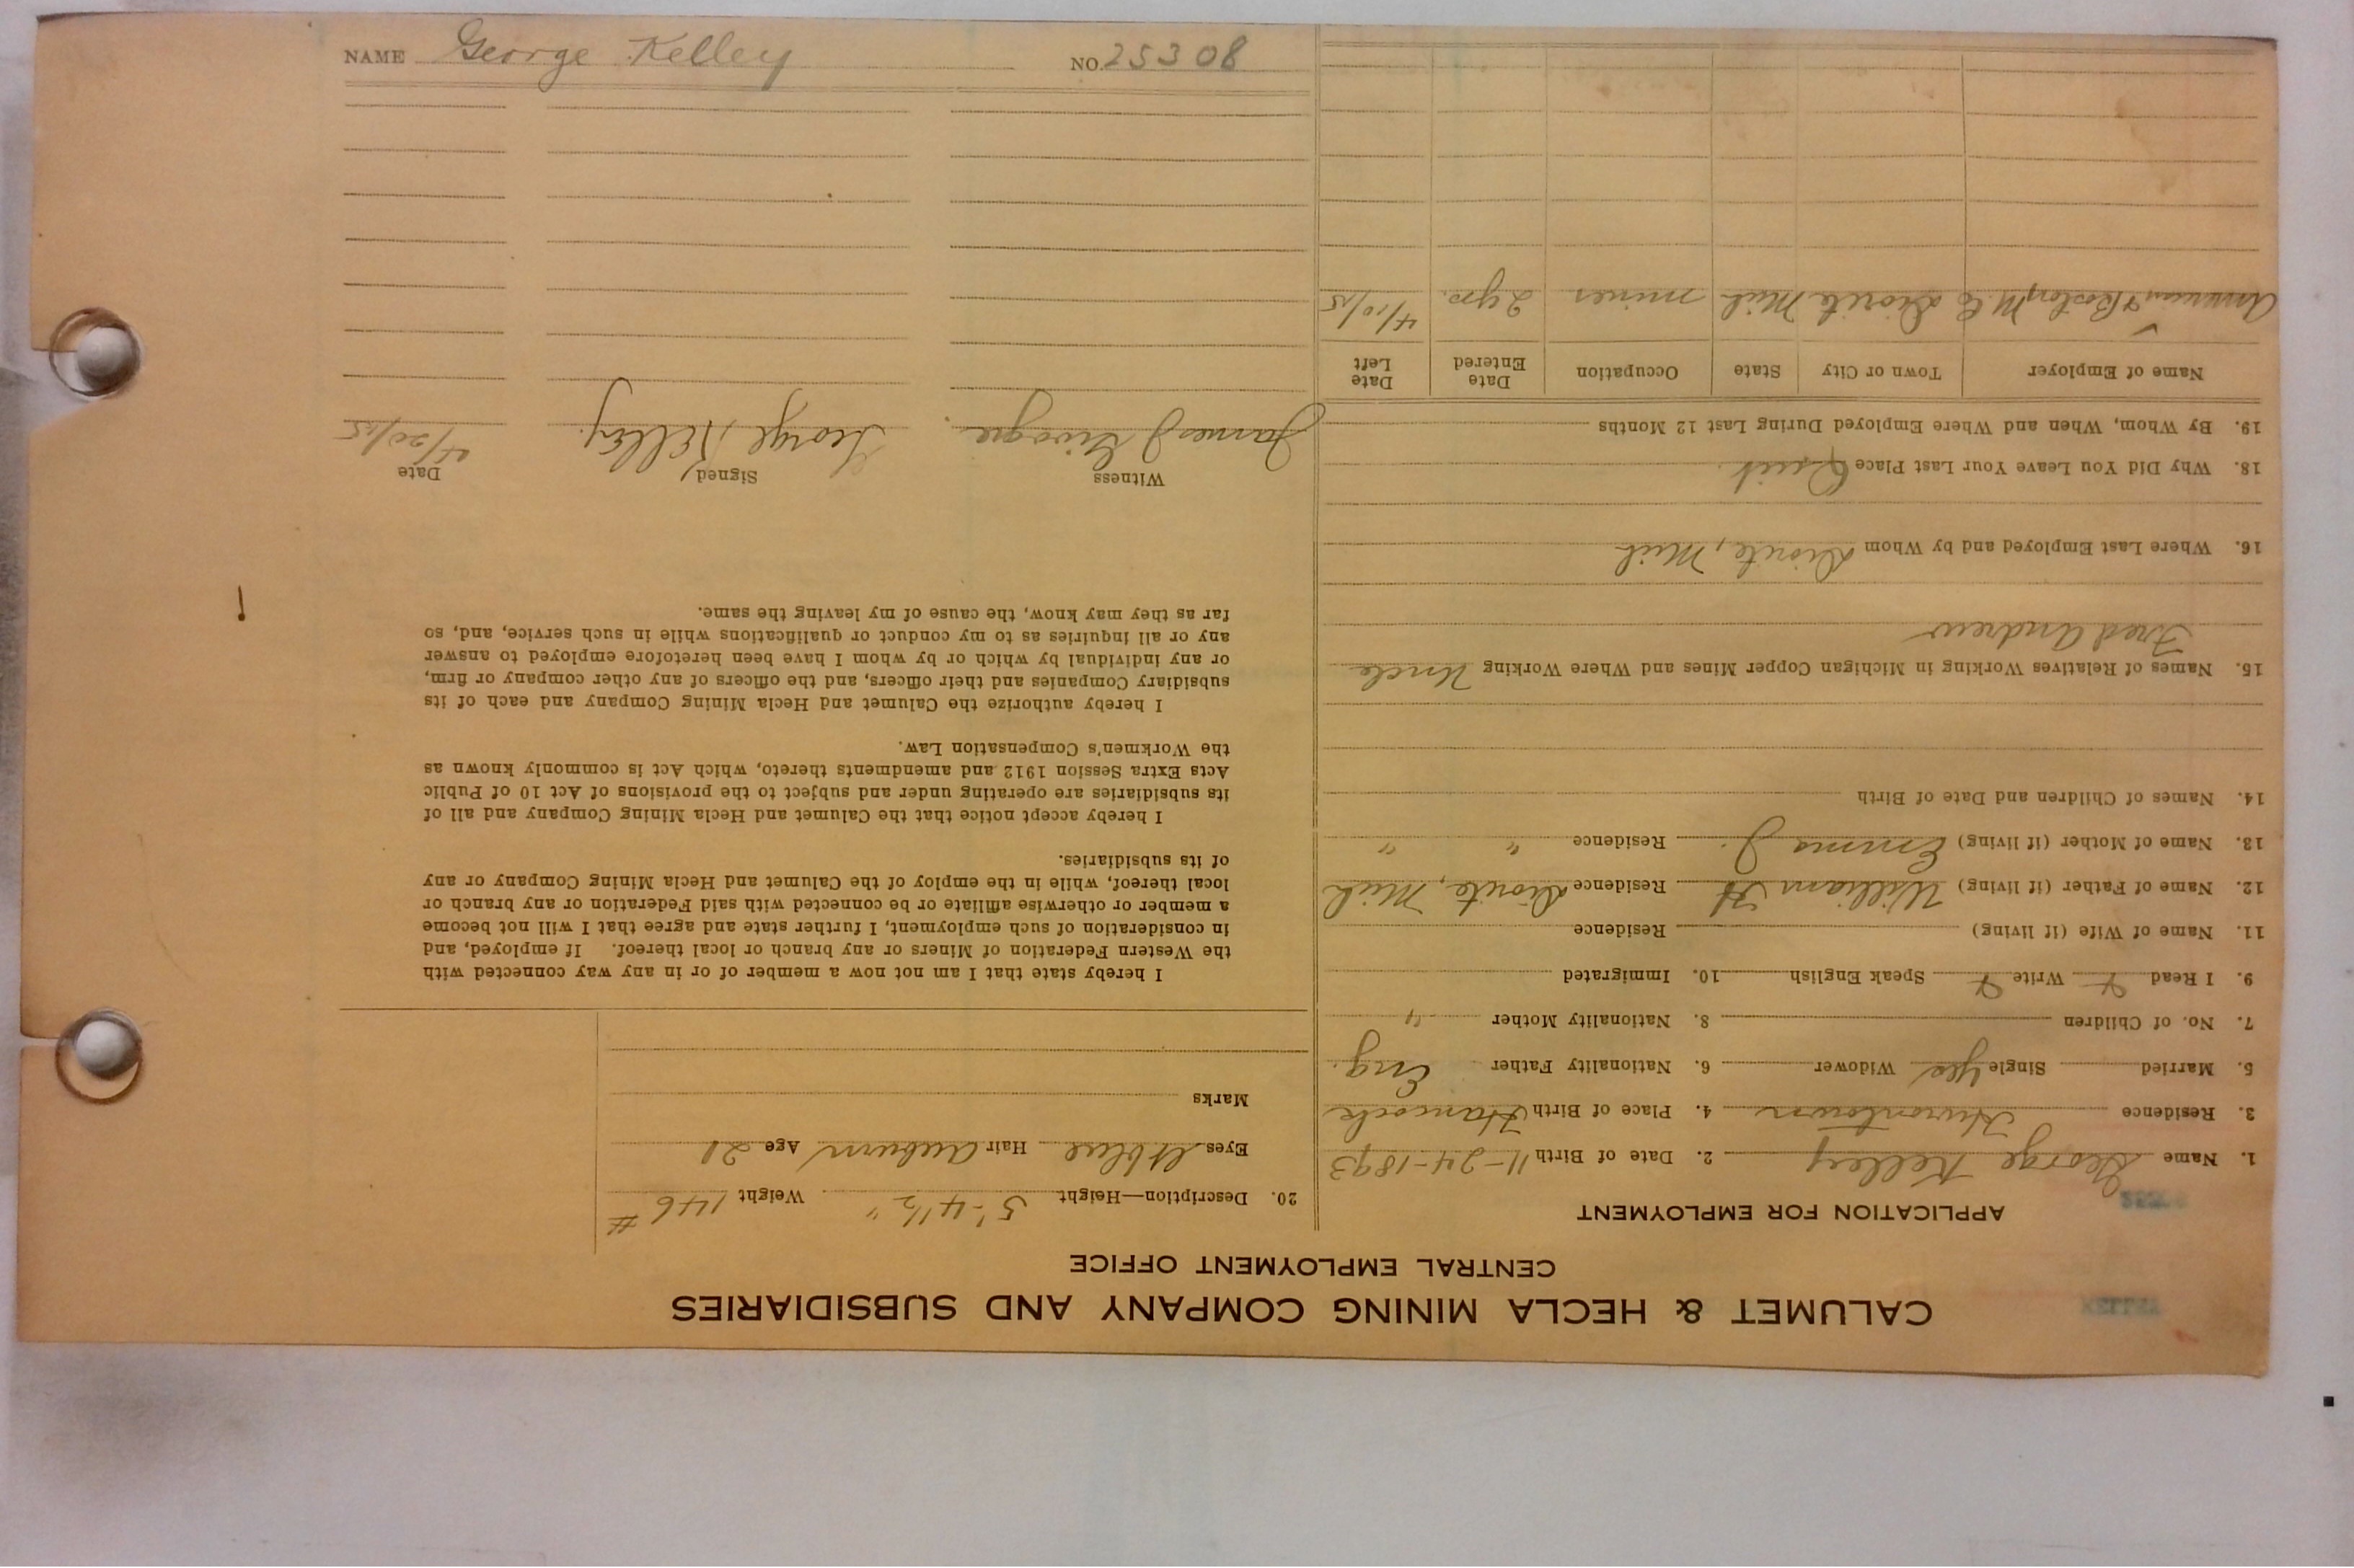 NAME George Kelley NO. 25308
CALUMET & HECLA MINING COMPANY AND SUBSIDIARIES
CENTRAL EMPLOYMENT OFFICE
APPLICATION FOR EMPLOYMENT
1. Name George Kelley 2. Date of Birth 11-24-1893
3. Residence Hurontown 4. Place of Birth Hancock
5. Married Single Yes Widower 6. Nationality Father Eng.
7. No. of Children 8. Nationality Mother "
9. I Read Write Speak English 10. Immigrated
11. Name of Wife (if living) Residence
12. Name of Father (if living) William H Residence Diorite, Mich
13. Name of Mother (if living) Emma J. Residence " "
14. Names of Children and Date of Birth
15. Names of Relatives Working in Michigan Copper Mines and Where Working Uncle
Fred Andrew
16. Where Last Employed and by Whom Diorite, Mich
18. Why Did You Leave Your Last Place Quit.
19. By Whom, When and Where Employed During Last 12 Months
Name of Employer Town or City State Occupation Date Entered Date Left
American & Boston M. Co Diorite Mich Mich miner 2 yrs. 4/10/15
20. Description—Height 5'-4 1/2" Weight 146 #
Eyes Lt blue Hair Auburn Age 21
Marks
I hereby state that I am not now a member of or in any way connected with
the Western Federation of Miners or any branch or local thereof. If employed, and
in consideration of such employment, I further state and agree that I will not become
a member or otherwise affiliate or be connected with said Federation or any branch or
local thereof, while in the employ of the Calumet and Hecla Mining Company or any
of its subsidiaries.
I hereby accept notice that the Calumet and Hecla Mining Company and all of
its subsidiaries are operating under and subject to the provisions of Act 10 of Public
Acts Extra Session 1912 and amendments thereto, which Act is commonly known as
the Workmen's Compensation Law.
I hereby authorize the Calumet and Hecla Mining Company and each of its
subsidiary Companies and their officers, and the officers of any other company or firm,
or any individual by which or by whom I have been heretofore employed to answer
any or all inquiries as to my conduct or qualifications while in such service, and, so
far as they may know, the cause of my leaving the same.
Witness Signed Date
James J George Kelley. 4/20/15